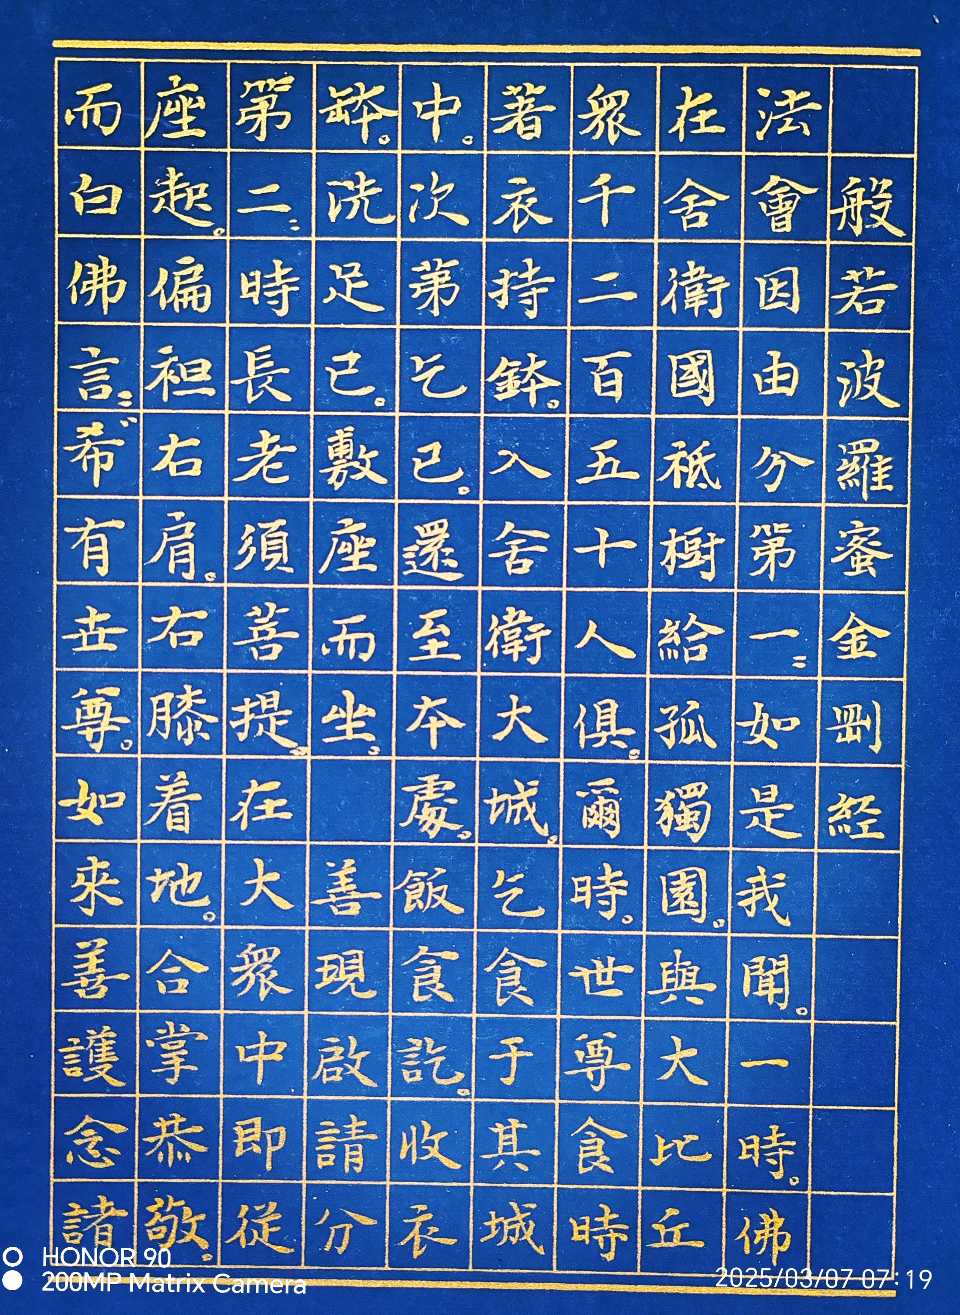 般若波羅蜜金剛經
法會因由分第一：如是我聞。一時。佛
在舍衛國祗樹給孤獨園。與大比丘
眾千二百五十人俱。爾時。世尊食時
著衣持鉢。入舍衛大城。乞食于其城
中。次第乞已。還至本處。飯食訖。收衣
鉢。洗足已。敷座而坐。 善現啟請分
第二：時長老須菩提。在大眾中即從
座起。偏袒右肩。右膝着地。合掌恭敬。
而白佛言：“希有世尊。如來善護念諸
HONOR 90
200MP Matrix Camera
2025/03/07 07:19